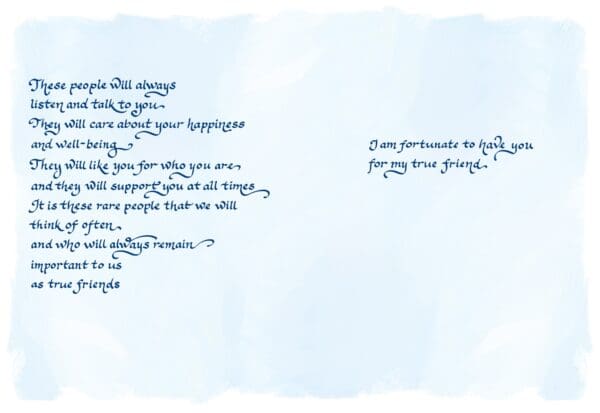 These people will always
listen and talk to you
They will care about your happiness
and well-being
They will like you for who you are
and they will support you at all times
It is these rare people that we will
think of often
and who will always remain
important to us
as true friends
I am fortunate to have you
for my true friend